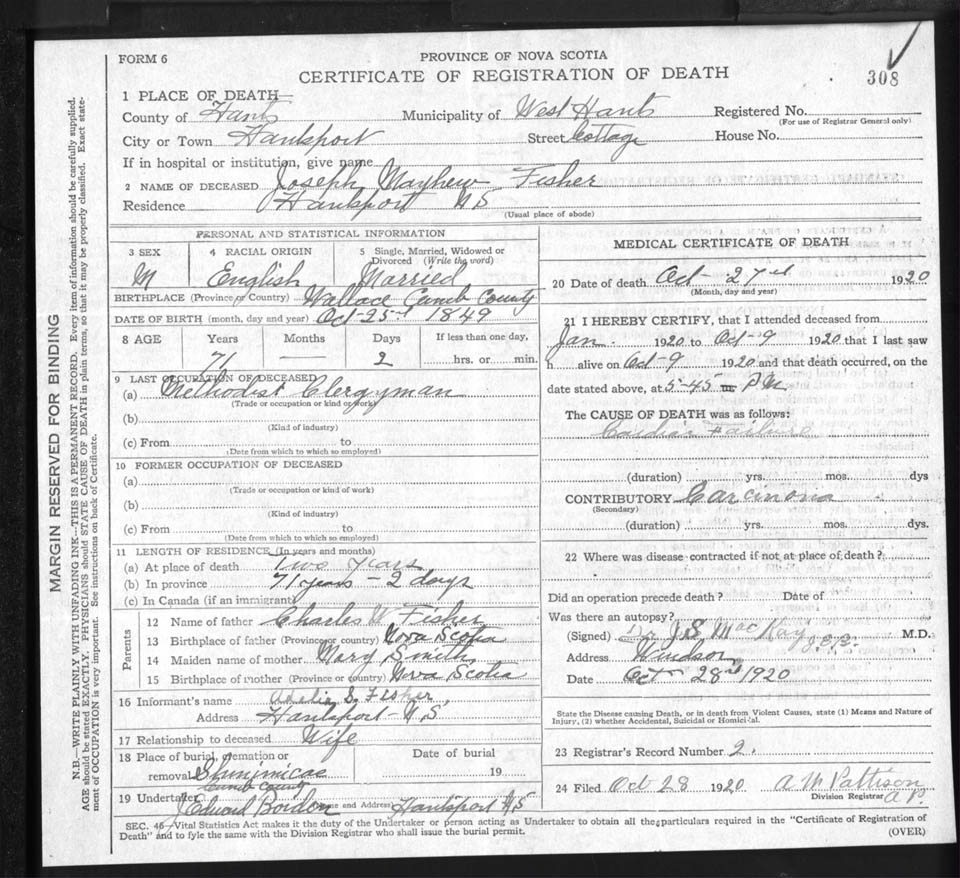 FORM 6
PROVINCE OF NOVA SCOTIA
CERTIFICATE OF REGISTRATION OF DEATH
308
1 PLACE OF DEATH—
County of Hants Municipality of West Hants Registered No.
(For use of Registrar General only)
City or Town Hantsport Street Cottage House No.
If in hospital or institution, give name
2 NAME OF DECEASED Joseph Mayhew Fisher
Residence Hantsport N S
(Usual place of abode)
PERSONAL AND STATISTICAL INFORMATION
3 SEX 4 RACIAL ORIGIN 5 Single, Married, Widowed or
Divorced (Write the word)
M English Married
BIRTHPLACE (Province or Country) Wallace Cumb County
DATE OF BIRTH (month, day and year) Oct 25 1849
8 AGE Years Months Days If less than one day,
71 — 2 hrs. or min.
9 LAST OCCUPATION OF DECEASED
(a) Methodist Clergyman
(Trade or occupation or kind of work)
(b)
(Kind of industry)
(c) From to
(Date from which to which so employed)
10 FORMER OCCUPATION OF DECEASED
(a)
(Trade or occupation or kind of work)
(b)
(Kind of industry)
(c) From to
(Date from which to which so employed)
11 LENGTH OF RESIDENCE (In years and months)
(a) At place of death Two Years
(b) In province 71 years – 2 days
(c) In Canada (if an immigrant)
Parents
12 Name of father Charles W Fisher
13 Birthplace of father (Province or country) Nova Scotia
14 Maiden name of mother Mary Smith
15 Birthplace of mother (Province or country) Nova Scotia
16 Informant's name Adelia S. Fisher
Address Hantsport N.S.
17 Relationship to deceased Wife
18 Place of burial, cremation or Date of burial
removal Shinimicas 19
Cumb County
19 Undertaker Edward Borden Name and Address Hantsport N S
MEDICAL CERTIFICATE OF DEATH
20 Date of death Oct 27 1920
(Month, day and year)
21 I HEREBY CERTIFY, that I attended deceased from
Jan. 1920 to Oct-9 1920 that I last saw
h alive on Oct-9 1920 and that death occurred, on the
date stated above, at 5-45 m P.M
The CAUSE OF DEATH was as follows:
Cardiac Failure
(duration) yrs. mos. dys
CONTRIBUTORY Carcinoma
(Secondary)
(duration) yrs. mos. dys.
22 Where was disease contracted if not at place of death?
Did an operation precede death? Date of
Was there an autopsy?
(Signed) Dr J.S. MacKay M.D.
Address Windsor
Date Oct 28 1920
State the Disease causing Death, or in death from Violent Causes, state (1) Means and Nature of
Injury, (2) whether Accidental, Suicidal or Homicidal.
23 Registrar's Record Number 2.
24 Filed Oct 28 1920 A M Pattison
Division Registrar
SEC. 46—Vital Statistics Act makes it the duty of the Undertaker or person acting as Undertaker to obtain all the particulars required in the "Certificate of Registration of
Death" and to fyle the same with the Division Registrar who shall issue the burial permit. (OVER)
MARGIN RESERVED FOR BINDING
N.B.—WRITE PLAINLY WITH UNFADING INK—THIS IS A PERMANENT RECORD. Every item of information should be carefully supplied.
AGE should be stated EXACTLY. PHYSICIANS should STATE CAUSE OF DEATH in plain terms, so that it may be properly classified. Exact state-
ment of OCCUPATION is very important. See instructions on back of Certificate.